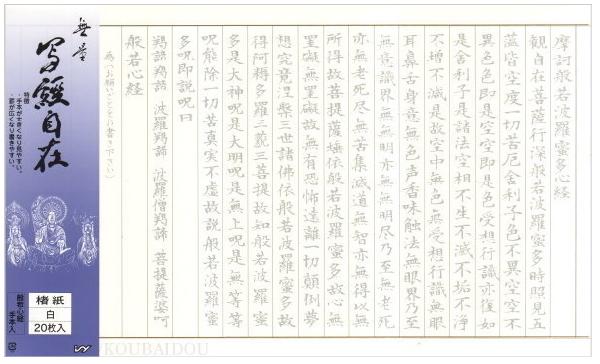 摩訶般若波羅蜜多心経
観自在菩薩行深般若波羅蜜多時照見五
蘊皆空度一切苦厄舎利子色不異空空不
異色色即是空空即是色受想行識亦復如
是舎利子是諸法空相不生不滅不垢不浄
不増不減是故空中無色無受想行識無眼
耳鼻舌身意無色声香味触法無眼界乃至
無意識界無無明亦無無明尽乃至無老死
亦無老死尽無苦集滅道無智亦無得以無
所得故菩提薩埵依般若波羅蜜多故心無
罣礙無罣礙故無有恐怖遠離一切顛倒夢
想究竟涅槃三世諸佛依般若波羅蜜多故
得阿耨多羅三藐三菩提故知般若波羅蜜
多是大神呪是大明呪是無上呪是無等等
呪能除一切苦真実不虚故説般若波羅蜜
多呪即説呪曰
羯諦羯諦 波羅羯諦 波羅僧羯諦 菩提薩婆呵
般若心経
為(お願いごとをお書き下さい)
無量
写經自在
特徴
・手本が大きくなり見やすい。
・罫が広くなり書きやすい。
楮紙
白
20枚入
般若心経
手本入
KOUBAIDOU